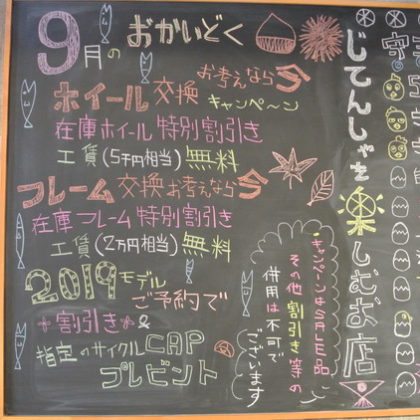 9月の おかいどく
お考えなら今
ホイール交換キャンペーン
在庫ホイール特別割引き
工賃(5千円相当)無料
フレーム交換お考えなら今
在庫フレーム特別割引き
工賃(2万円相当)無料
2019モデル
ご予約で
割引き&
指定のサイクルCAP
プレゼント
キャンペーンはSALE品
その他割引き等の
併用は不可で
ございます
じてんしゃを楽しむお店